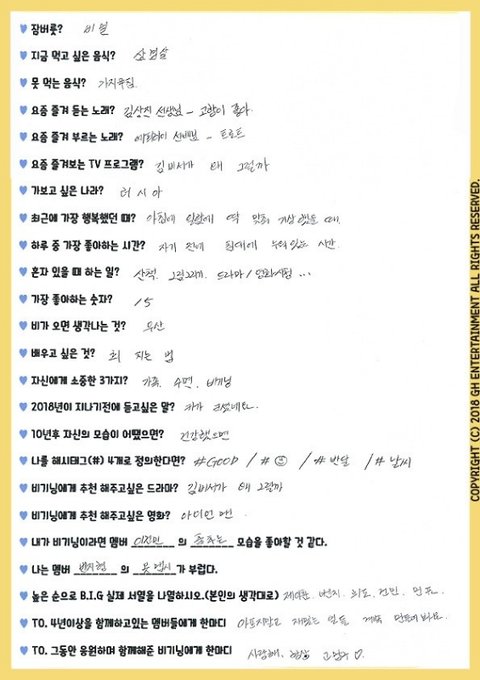 ♥ 잠버릇? 비밀
♥ 지금 먹고 싶은 음식? 삼겹살
♥ 못 먹는 음식? 가지무침
♥ 요즘 즐겨 듣는 노래? 김상진 선생님 - 고향이 좋다.
♥ 요즘 즐겨 부르는 노래? 선배님 - 트로트
♥ 요즘 즐겨보는 TV 프로그램? 김비서가 왜 그럴까
♥ 가보고 싶은 나라? 러시아
♥ 최근에 가장 행복했던 때? 아침에 일찍에 딱 맞춰 기상했을 때.
♥ 하루 중 가장 좋아하는 시간? 자기 전에 침대에 누워있는 시간.
♥ 혼자 있을 때 하는 일? 산책. 그림그리기. 드라마/만화시청 ...
♥ 가장 좋아하는 숫자? 15
♥ 비가 오면 생각나는 것? 우산
♥ 배우고 싶은 것? 회 치는 법
♥ 자신에게 소중한 3가지? 가족. 수면. 비기닝
♥ 2018년이 지나기전에 듣고싶은 말? 키가 크셨네요.
♥ 10년후 자신의 모습이 어땠으면? 건강했으면
♥ 나를 해시태그(#) 4개로 정의한다면? #GOOD / #☺ / #반달 / #날씨
♥ 비기닝에게 추천 해주고싶은 드라마? 김비서가 왜 그럴까
♥ 비기닝에게 추천 해주고싶은 영화? 아이언맨
♥ 내가 비기닝이라면 멤버 의 춤추는 모습을 좋아할 것 같다.
♥ 나는 멤버 의 가 부럽다.
♥ 높은 순으로 B.I.G 실제 서열을 나열하시오.(본인의 생각대로) 벤지. 희도. 건민. 민표.
♥ TO. 4년이상을 함께하고있는 멤버들에게 한마디 아프지말고 재밌는 일들 계속 만들어봐요.
♥ TO. 그동안 응원하며 함께해준 비기닝에게 한마디 사랑해. 항상 고마워♡.
COPYRIGHT (C) 2018 GH ENTERTAINMENT ALL RIGHTS RESERVED.